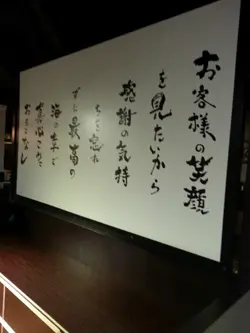 お客様の笑顔
を見たいから
感謝の気持
ちを忘れ
ずに最高の
海の幸で
真心こめた
おもてなし